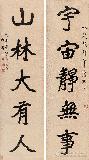 宇宙靜無事
山林大有人